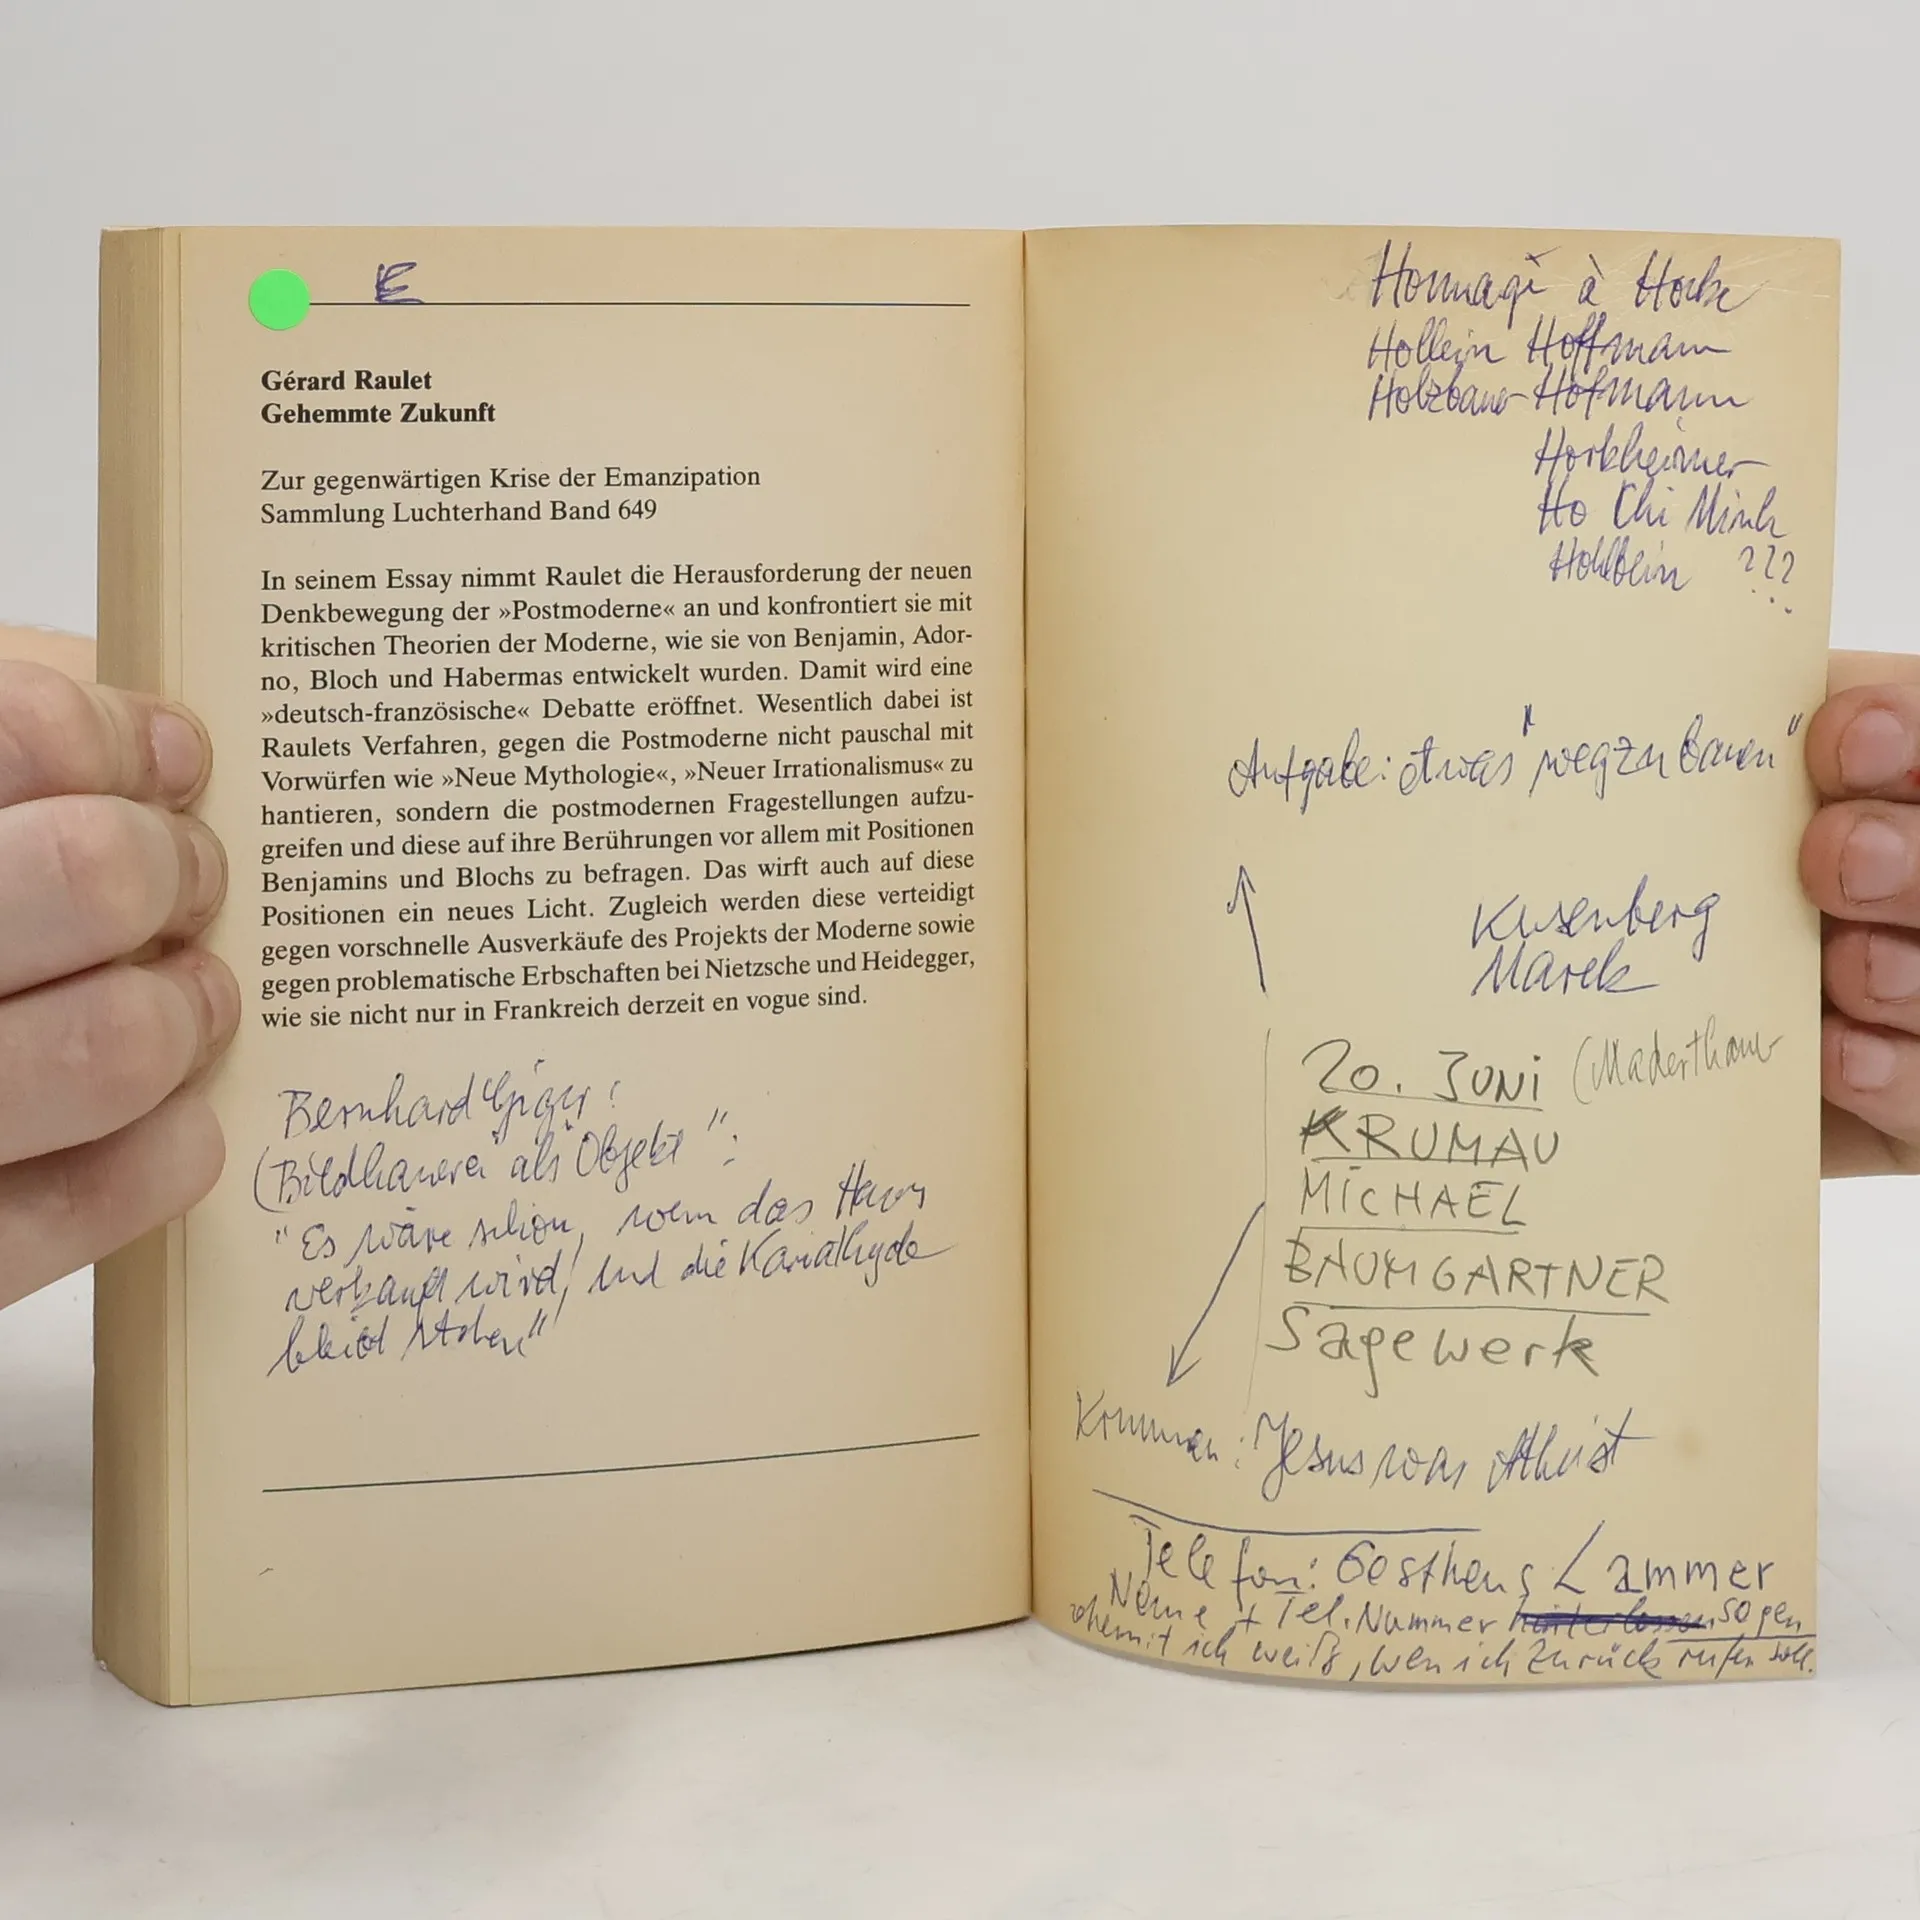 E
Gérard Raulet
Gehemmte Zukunft
Zur gegenwärtigen Krise der Emanzipation
Sammlung Luchterhand Band 649
In seinem Essay nimmt Raulet die Herausforderung der neuen
Denkbewegung der »Postmoderne« an und konfrontiert sie mit
kritischen Theorien der Moderne, wie sie von Benjamin, Ador-
no, Bloch und Habermas entwickelt wurden. Damit wird eine
»deutsch-französische« Debatte eröffnet. Wesentlich dabei ist
Raulets Verfahren, gegen die Postmoderne nicht pauschal mit
Vorwürfen wie »Neue Mythologie«, »Neuer Irrationalismus« zu
hantieren, sondern die postmodernen Fragestellungen aufzu-
greifen und diese auf ihre Berührungen vor allem mit Positionen
Benjamins und Blochs zu befragen. Das wirft auch auf diese
Positionen ein neues Licht. Zugleich werden diese verteidigt
gegen vorschnelle Ausverkäufe des Projekts der Moderne sowie
gegen problematische Erbschaften bei Nietzsche und Heidegger,
wie sie nicht nur in Frankreich derzeit en vogue sind.
Bernhard Giger:
(Bildhauerei als Objekt":
"Es wäre schön, wenn das Haus
verkauft wird, und die Kariathyde
bleibt stehen"
Homagi à
Hollein Hoffmann
Holzbauer Hofmann
Horkheimer
Ho Chi Minh
Hohlbein ???
Aufgabe: etwas "wegzubauen"
Kusenberg
Marek
20. JUNI (Maderthaner
KRUMAU
MICHAEL
BAUMGARTNER
Sägewerk
Krumau: Jesus war Atheist
Telefon: Lammer
Name + Tel. Nummer hinterlassen sagen
damit ich weiß, wen ich zurück rufen soll.